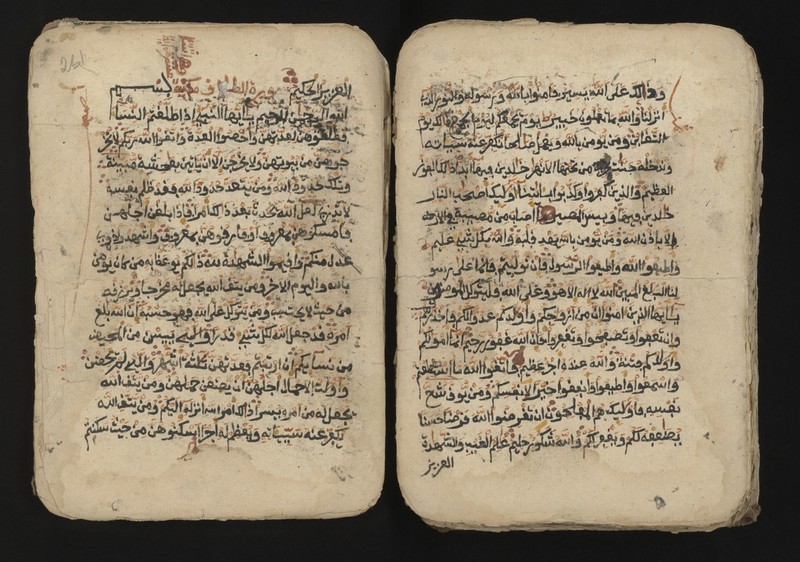 وذالك على الله يسير فامنوا بالله ورسوله والنور الذي
أنزلنا والله بما تعملون خبير يوم يجمعكم ليوم الجمع ذلك يوم
التغابن ومن يومن بالله ويعمل صلحا نكفر عنه سياته
وندخله جنت من تحتها الانهر خلدين فيها ابدا ذلك الفوز
العظيم والذين كفروا وكذبوا بايتنا أوليك أصحب النار
خلدين فيها وبيس المصير ما أصاب من مصيبة في الارض
إلا باذن الله ومن يومن بالله يهد قلبه والله بكل شيء عليم
وأطيعوا الله وأطيعوا الرسول فإن توليتم فإنما على رسو
لنا البلغ المبين الله لا إله إلا هو وعلى الله فليتوكل المومنون
يأيها الذين امنوا إن من أزوجكم وأولدكم عدوا لكم فاحذروهم
وإن تعفوا وتصفحوا وتغفروا فإن الله غفور رحيم إنما أمولكم
وأولدكم فتنة والله عنده أجر عظيم فاتقوا الله ما استطعتم
واسمعوا وأطيعوا وأنفقوا خيرا لأنفسكم ومن يوق شح
نفسه فأوليك هم المفلحون إن تقرضوا الله قرضا حسنا
يضعفه لكم ويغفر لكم والله شكور حليم علم الغيب والشهدة
العزيز
العزيز الحكيم سورة الطلاق بسم
الله الرحمن الرحيم يأيها النبي إذا طلقتم النسا
فطلقوهن لعدتهن وأحصوا العدة واتقوا الله ربكم لا تخر
جوهن من بيوتهن ولا يخرجن إلا أن ياتين بفحشة مبينة
وتلك حدود الله ومن يتعد حدود الله فقد ظلم نفسه
لا تدري لعل الله يحدث بعد ذلك أمرا فإذا بلغن أجلهن
فأمسكوهن بمعروف أو فارقوهن بمعروف وأشهدوا ذوي
عدل منكم وأقيموا الشهدة لله ذلكم يوعظ به من كان يومن
بالله واليوم الاخر ومن يتق الله يجعل له مخرجا ويرزقه
من حيث لا يحتسب ومن يتوكل على الله فهو حسبه إن الله بلغ
أمره قد جعل الله لكل شيء قدرا والي ييسن من المحيض
من نسايكم إن ارتبتم فعدتهن ثلثة أشهر والي لم يحضن
وأولت الاحمال أجلهن أن يضعن حملهن ومن يتق الله
يجعل له من أمره يسرا ذلك أمر الله أنزله إليكم ومن يتق الله
يكفر عنه سياته ويعظم له أجرا أسكنوهن من حيث سكنتم